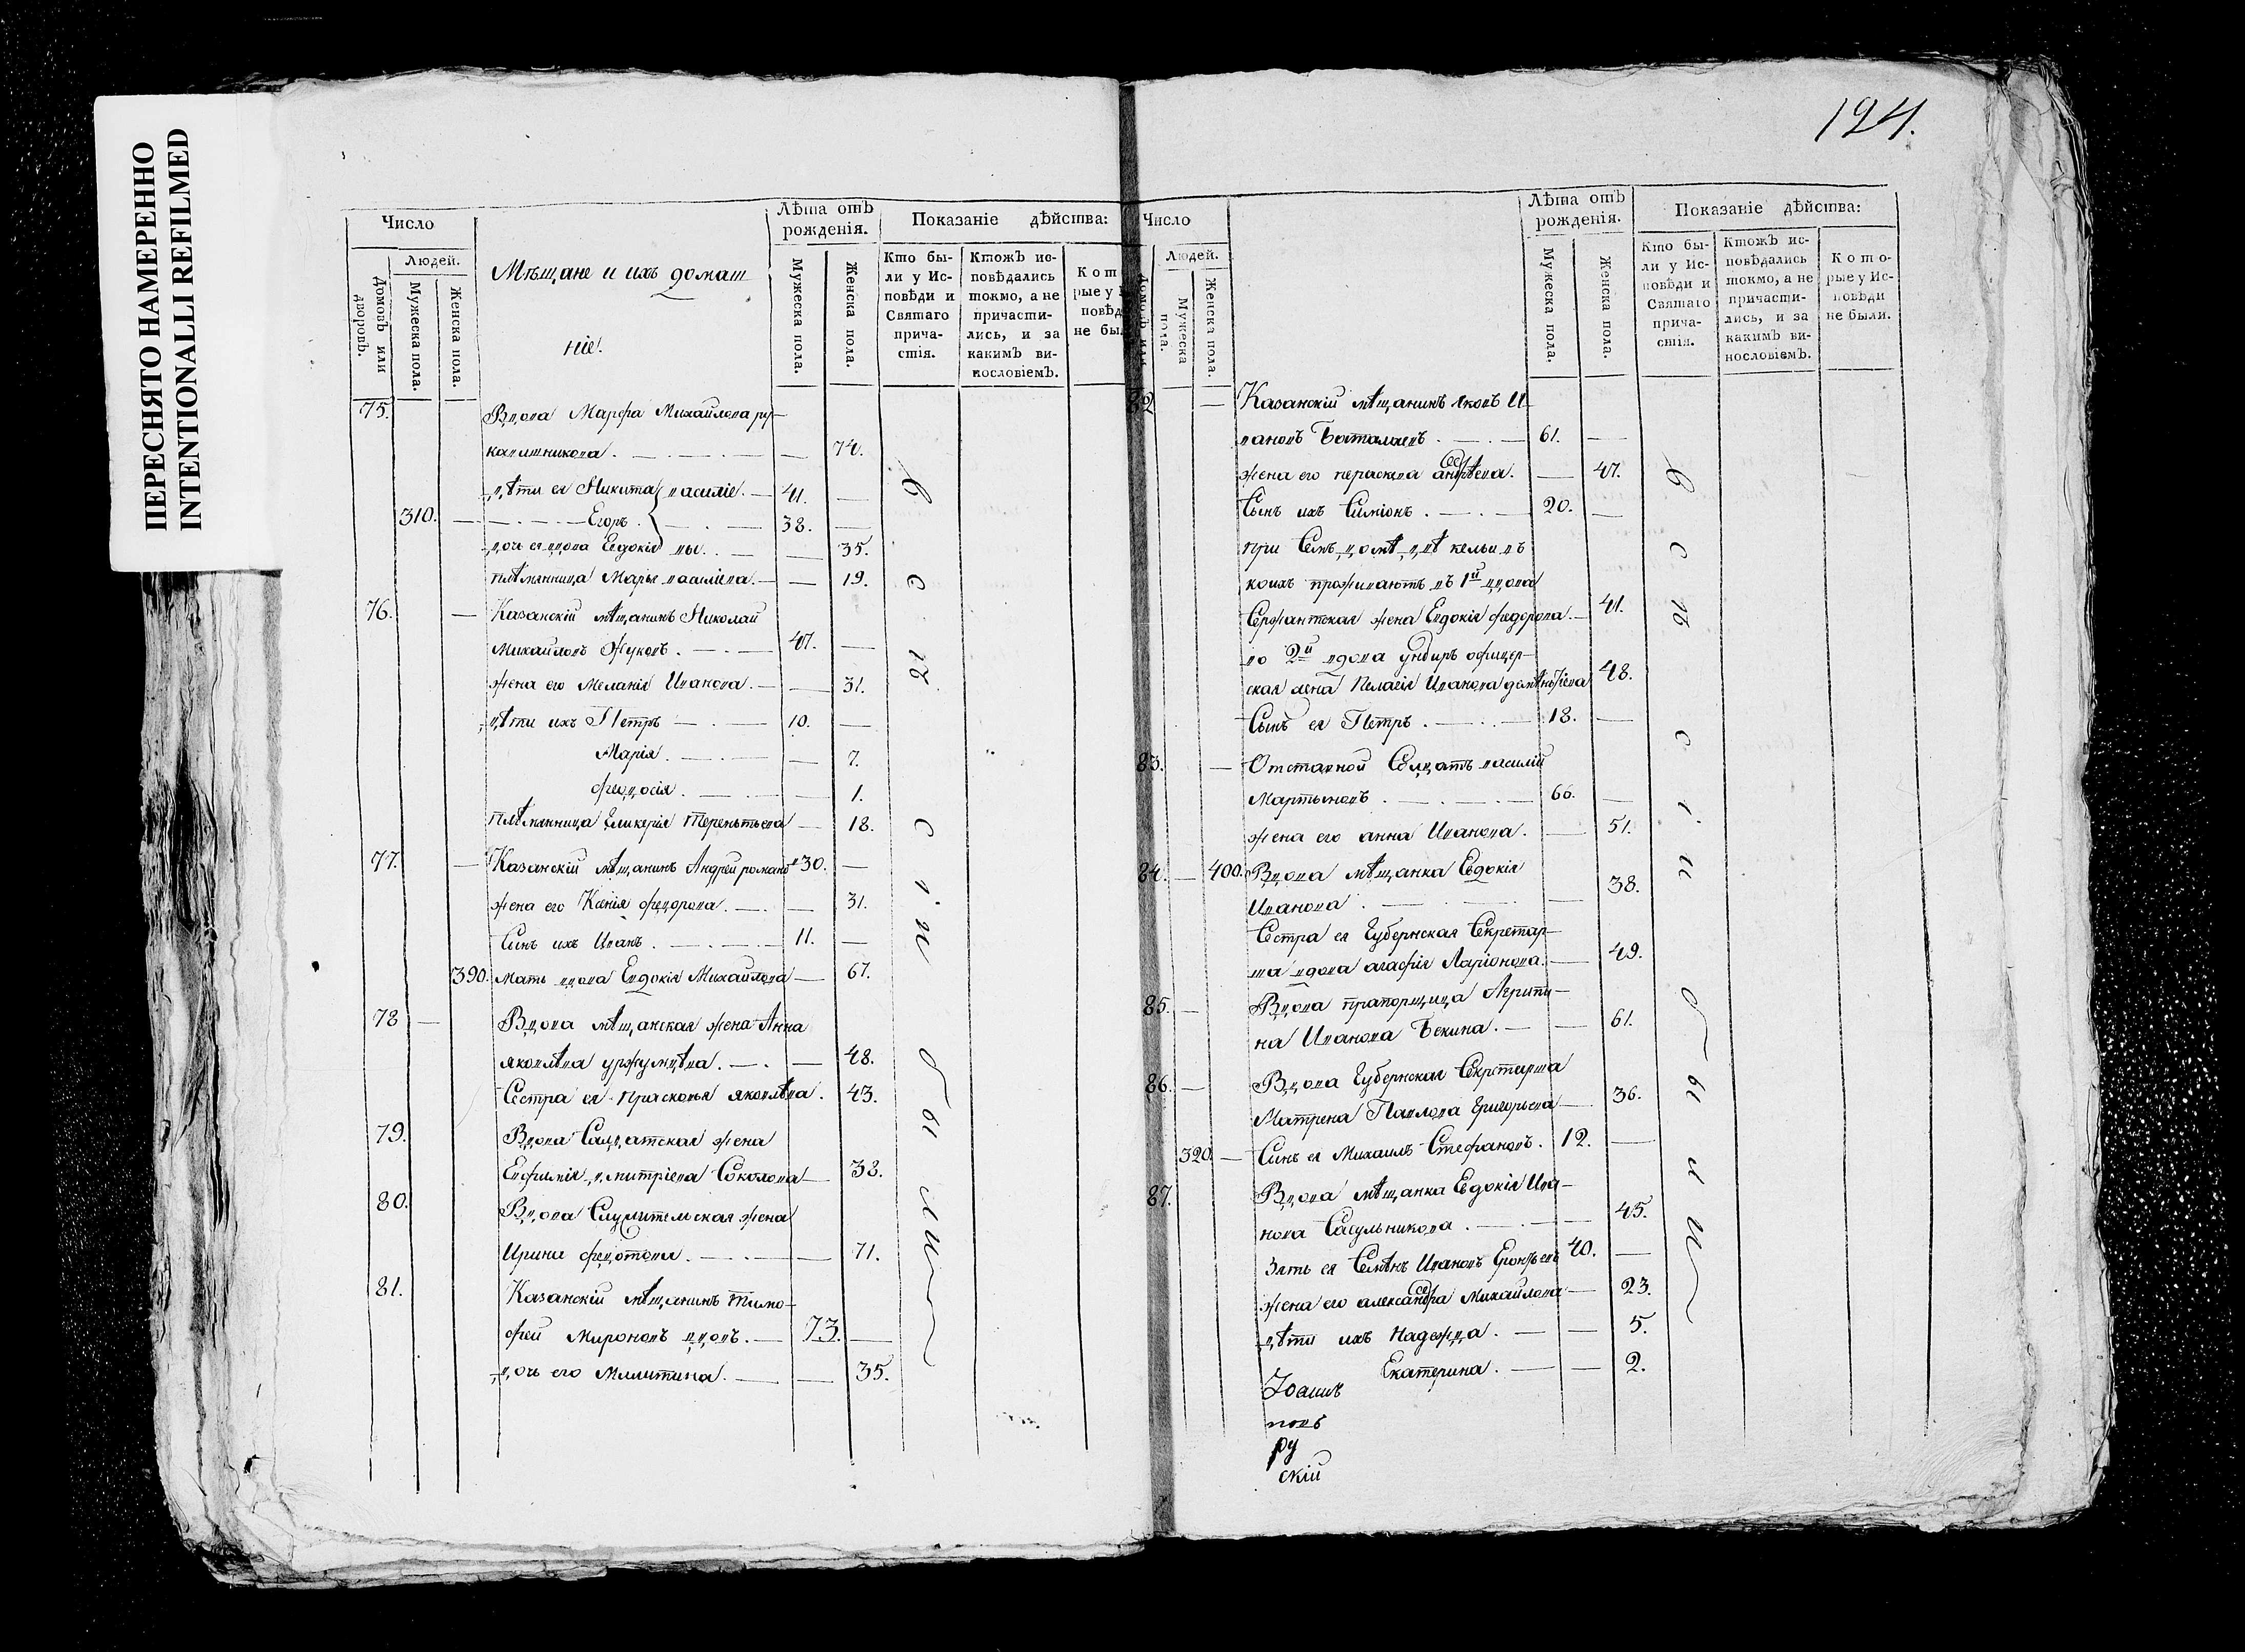 ПЕРЕСНЯТО НАМЕРЕННО
INTENTIONALLI REFILMED
124.
Число
Людей.
Домовъ или дворовъ.
Мужеска пола.
Женска пола.
Мѣщане и ихъ домаш
ніе.
Лѣта отъ рожденія.
Мужеска пола.
Женска пола.
Показаніе дѣйства:
Кто были у Исповѣди и Святаго причастія.
Ктожъ исповѣдались токмо, а не причастились, и за какимъ винословіемъ.
75. Вдова Марфа Михайлова ру-
кавишникова. 74.
дѣти ея Никита василіе. 41.
310. Егоръ. 38.
дочь ея вдова Евдокія вы. 35.
племянница Марья василіева. 19.
76. Казанскій мѣщанинъ Николай
Михайловъ Жуковъ. 47.
жена его Меланія Иванова. 31.
дѣти ихъ Петръ 10.
Марія. 7.
Феодосія. 1.
племянница Гликерія Терентьева 18.
77. Казанскій мѣщанинъ Андрей романовъ 30.
жена его Ксенія федорова. 31.
Сынъ ихъ Иванъ. 11.
390. Мать вдова Евдокія Михайлова 67.
78 Вдова мѣщанская жена Анна
яковлева уржумцева. 48.
Сестра ея Прасковья яковлева. 43.
79. Вдова Салдатская жена
Евфимія дмитріева Соколова 38.
80. Вдова Служительская жена
Ирина федотова. 71.
81. Казанскій мѣщанинъ Тимо-
фей Мироновъ вдовъ. 73.
дочь его Милитина. 35.
всѣ
были
Число
Людей.
Мужеска пола.
Женска пола.
Лѣта отъ рожденія.
Мужеска пола.
Женска пола.
Показаніе дѣйства:
Кто были у Исповѣди и Святаго причастія.
Ктожъ исповѣдались токмо, а не причастились, и за какимъ винословіемъ.
Которые у Исповѣди не были.
82 Казанскій мѣщанинъ Яковъ И-
вановъ 61.
жена его параскева 47.
Сынъ ихъ Симіонъ. 20.
при Семъ домѣ двѣ кельи въ
коихъ проживаютъ въ 1й вдова
Сержантская жена Евдокія федорова. 41.
во 2й вдова ундиръ офицер-
ская жена Пелагія Иванова 48.
Сынъ ея Петръ. 18.
83. Отставной Солдатъ василій
Мартыновъ. 66.
жена его анна Иванова. 51.
84. 400. Вдова мѣщанка Евдокія
Иванова. 38.
Сестра ея Губернская Секретар-
ша вдова агафія Ларіонова. 49.
85. Вдова прапорщица Агрипи-
на Иванова Бекина. 61.
86. Вдова Губернская Секретарша
Матрена Павлова Григорьева 36.
320. Сынъ ея Михаилъ Стефановъ. 12.
87. Вдова мѣщанка Евдокія Ива-
нова Сасульникова. 45.
Зять ея Семѣнъ Ивановъ 40.
жена его александра Михайлова 23.
дѣти ихъ Надежда. 5.
Екатерина. 2.
всѣ
были
Іоаннъ
повъ
ру
скій